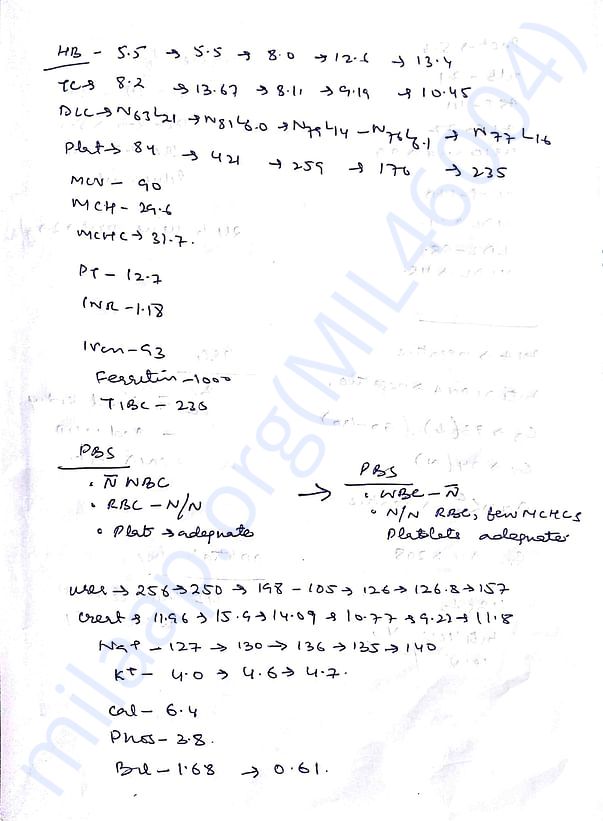 HB - 5.5 → 5.5 → 8.0 → 12.6 → 13.4
TC → 8.2 → 13.67 → 8.11 → 9.19 → 10.45
DLC → N63L21 → N81L8.0 → N79L14 - N76L8.1 → N77L16
Plat → 84 → 421 → 259 → 176 → 235
MCV - 90
MCH - 29.6
MCHC → 31.7.
PT - 12.7
INR - 1.18
Iron - 93
Ferritin - 1000
TIBC - 236
PBS
• N̄ WBC
• RBC - N/N
• Plat → adequate
→ PBS
• WBC - N̄
• N/N RBC, few MCHCS
Platelets adequate
urea → 256 → 250 → 198 - 105 → 126 → 126.8 → 157
Creat → 11.96 → 15.9 → 14.09 → 10.77 → 9.22 → 11.8
Na+ - 127 → 130 → 136 → 135 → 140
K+ - 4.0 → 4.6 → 4.7.
Cal - 6.4
Phos - 3.8.
Bil - 1.68 → 0.61.
milaap.org(MIL46004)